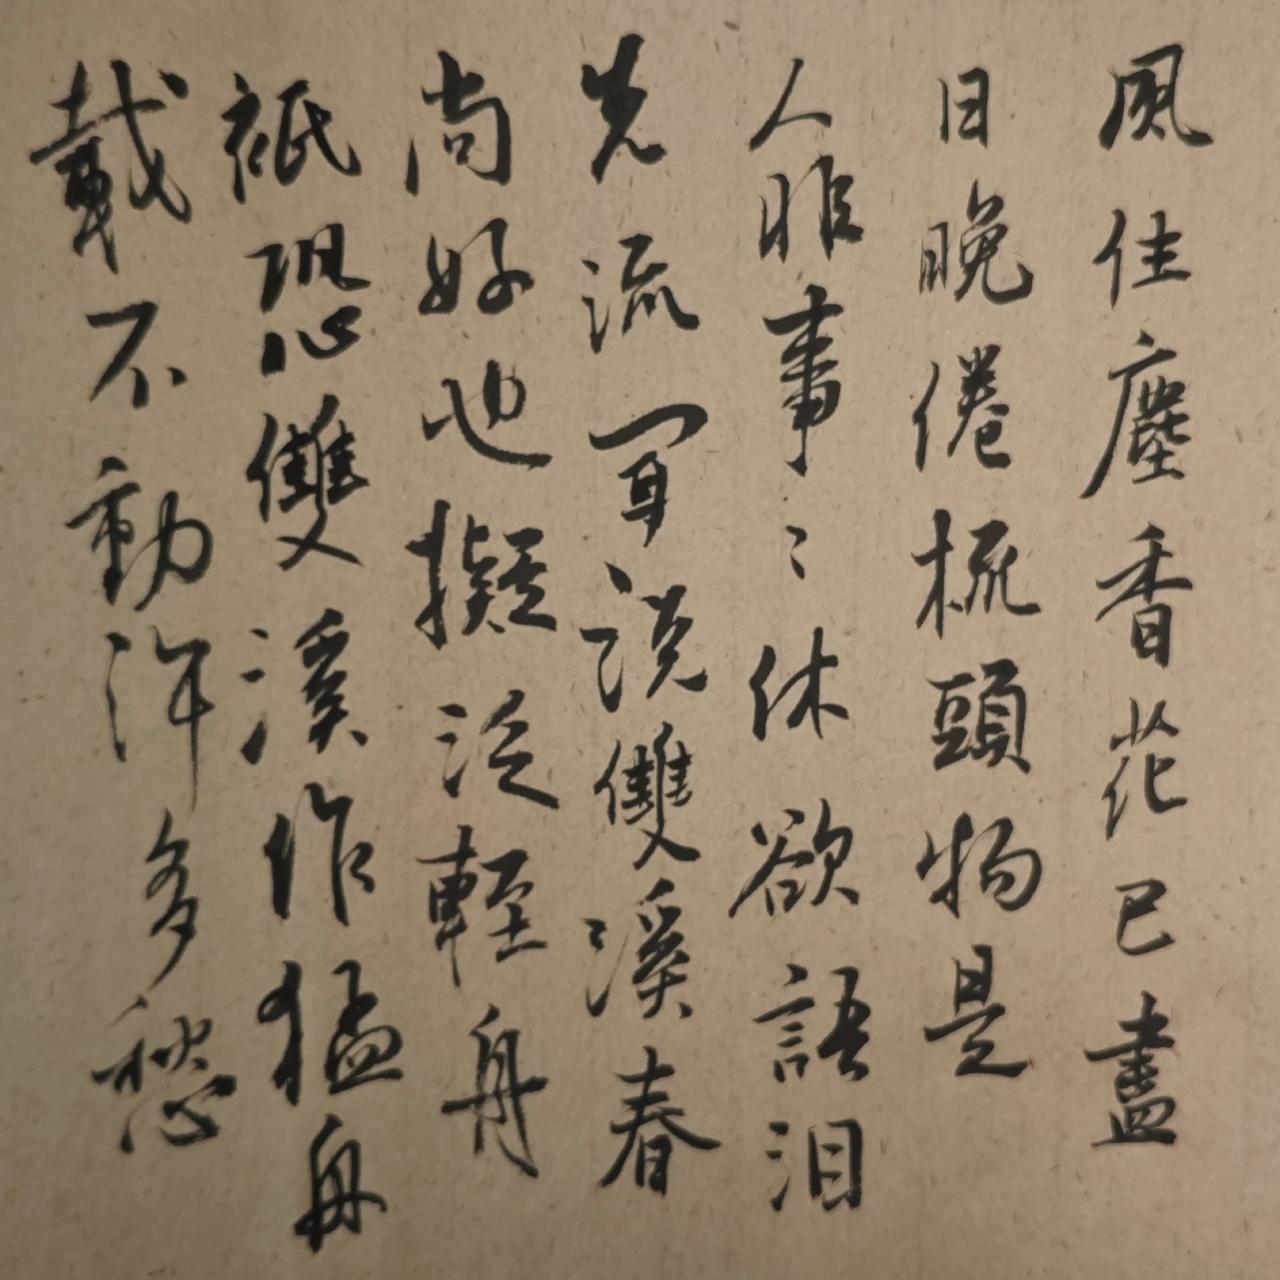 風住塵香花已盡
日晚倦梳頭物是
人非事〻休欲語泪
先流聞説雙溪春
尚好也擬泛輕舟
祇恐雙溪作猛舟
載不動許多愁